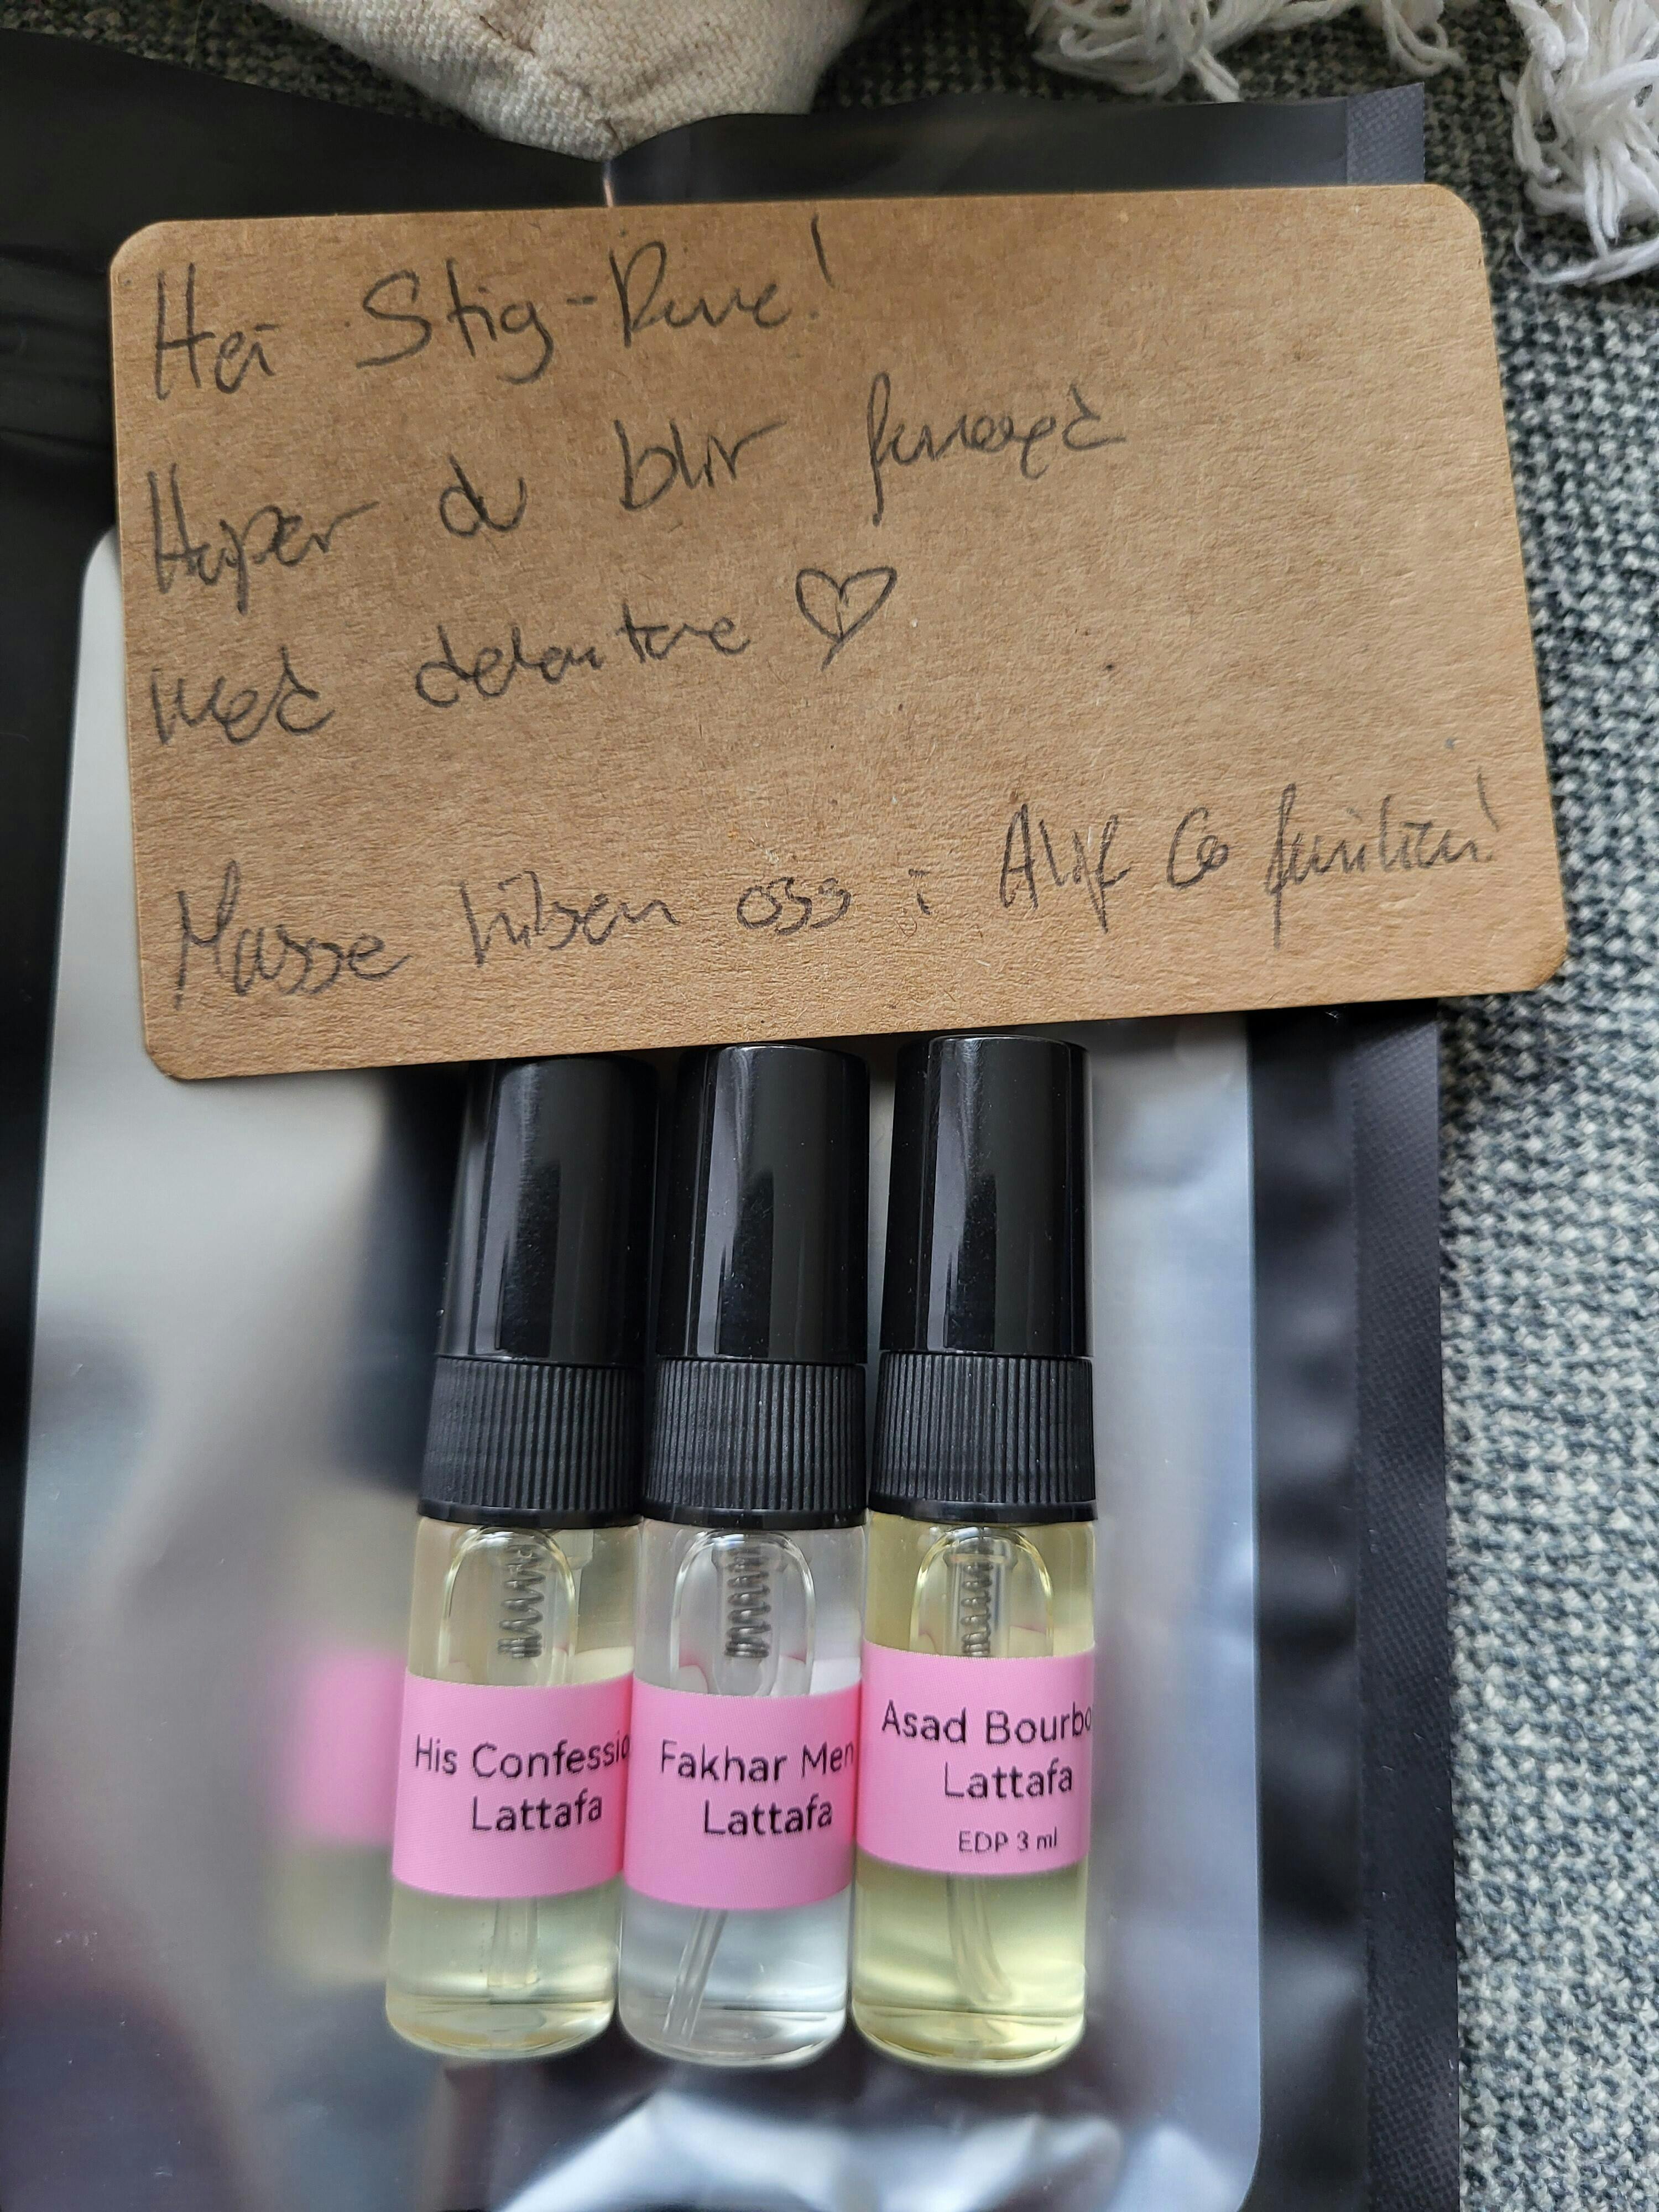 Hei Stig-Rune!
Håper du blir fornøyd
med dekantene ♡
Masse hilsen oss i Alif Co familien!
His Confessio
Lattafa
Fakhar Men
Lattafa
Asad Bourbo
Lattafa
EDP 3 ml